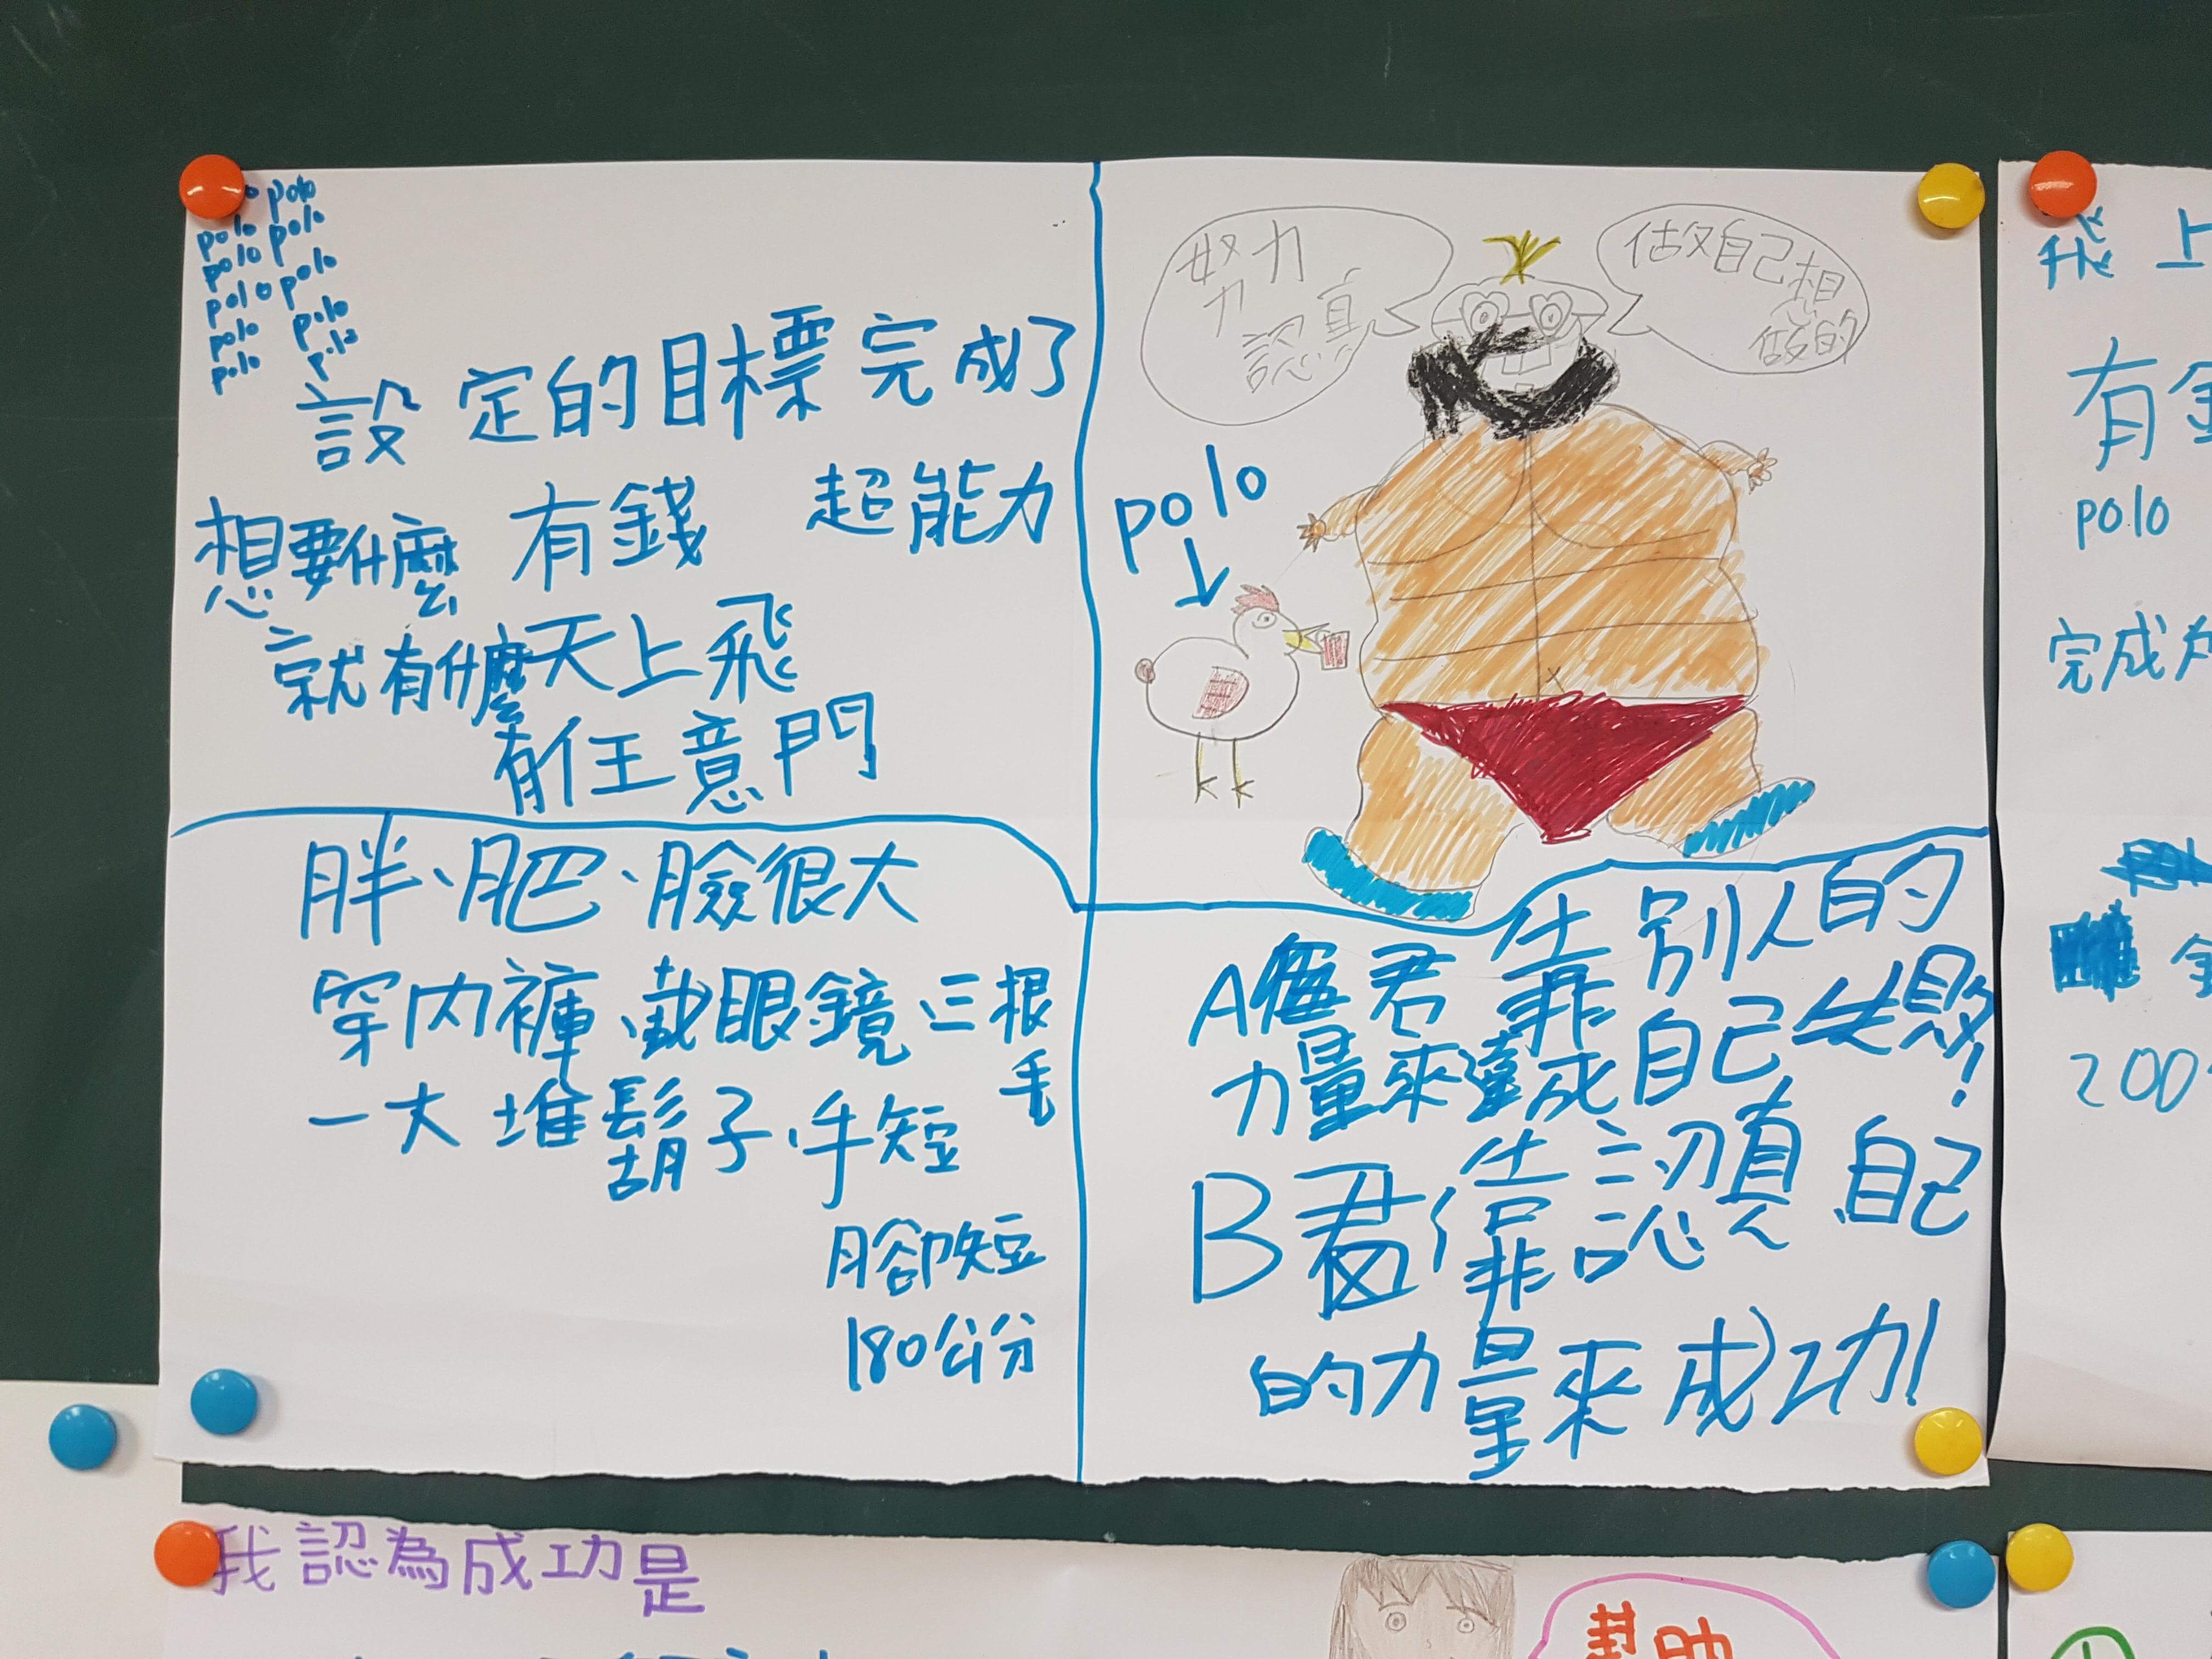 polo
polo polo
polo polo
polo polo
polo polo
polo polo
設定的目標完成了
想要什麼 有錢 超能力
就有什麼 天上飛
有任意門
努力
認真
做自己想
做的
polo
胖、肥、臉很大
穿內褲、戴眼鏡、三根
毛
一大堆鬍子、手短
腳短
180公分
A君靠別人的
力量來達成自己失敗!
B君靠認真自己
的力量來成功!
我認為成功是
飛上
有
polo
完成
200
幫助